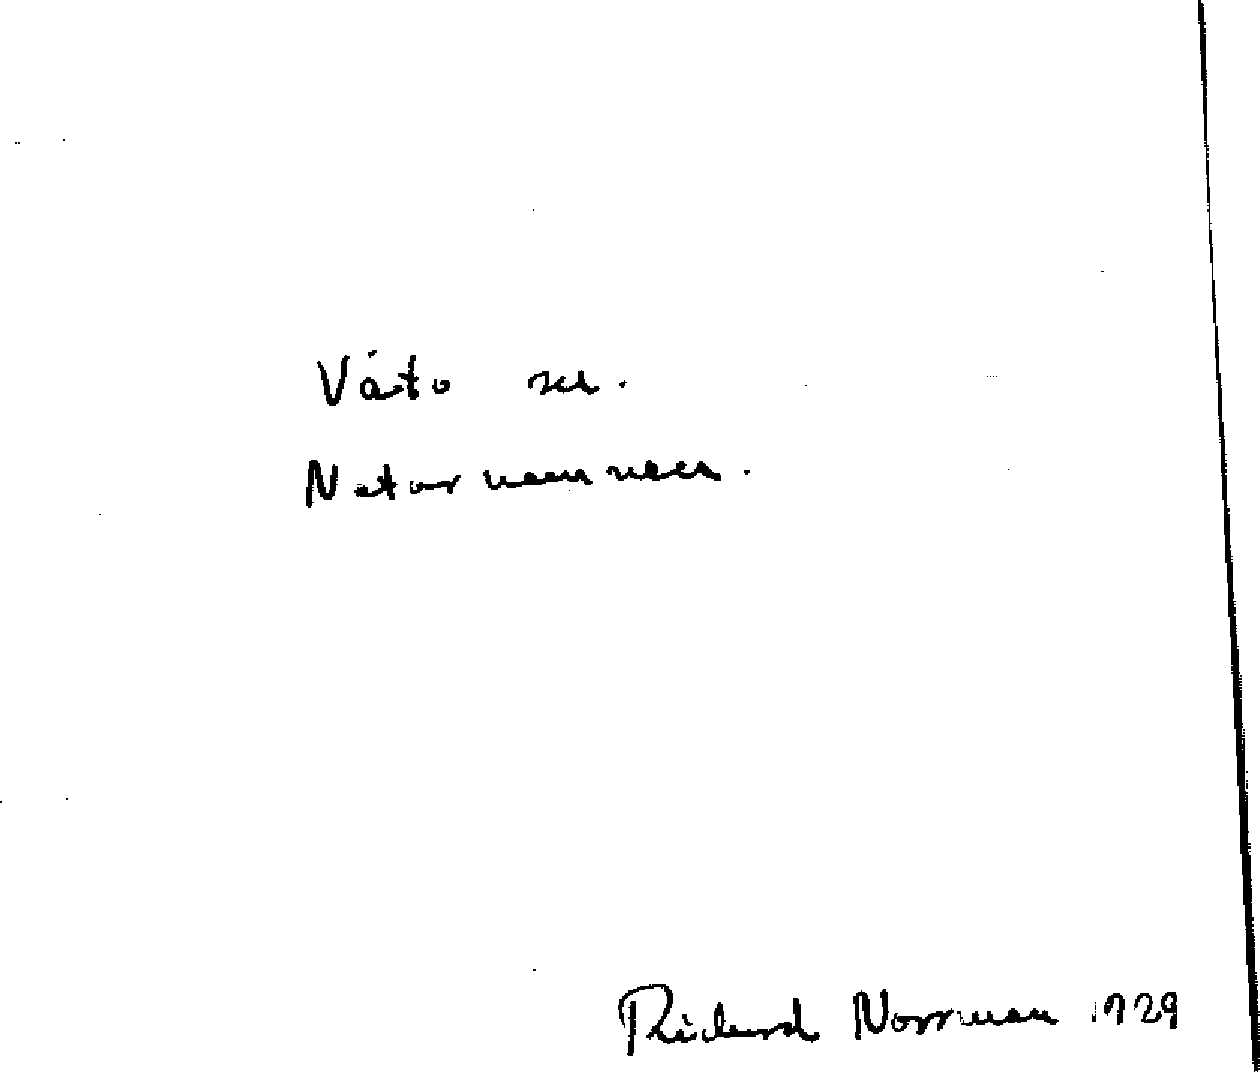 Vätö sn.
Naturnamnen.
Richard Norrman 1929